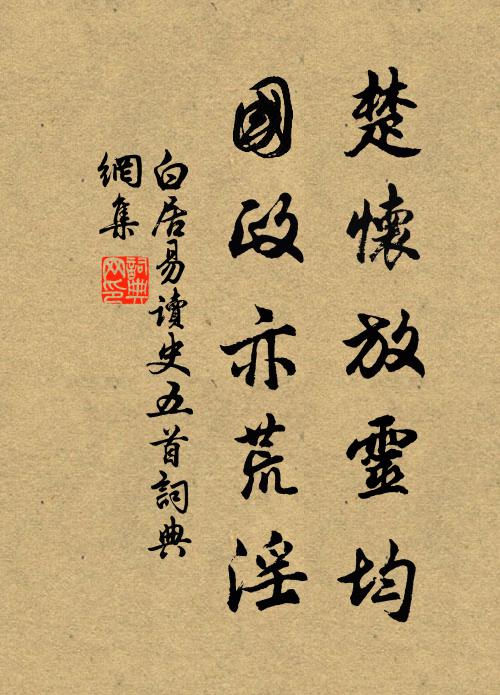 楚懷放靈均
國政亦荒淫
白居易讀史五首詞典
網集
詞典
网印